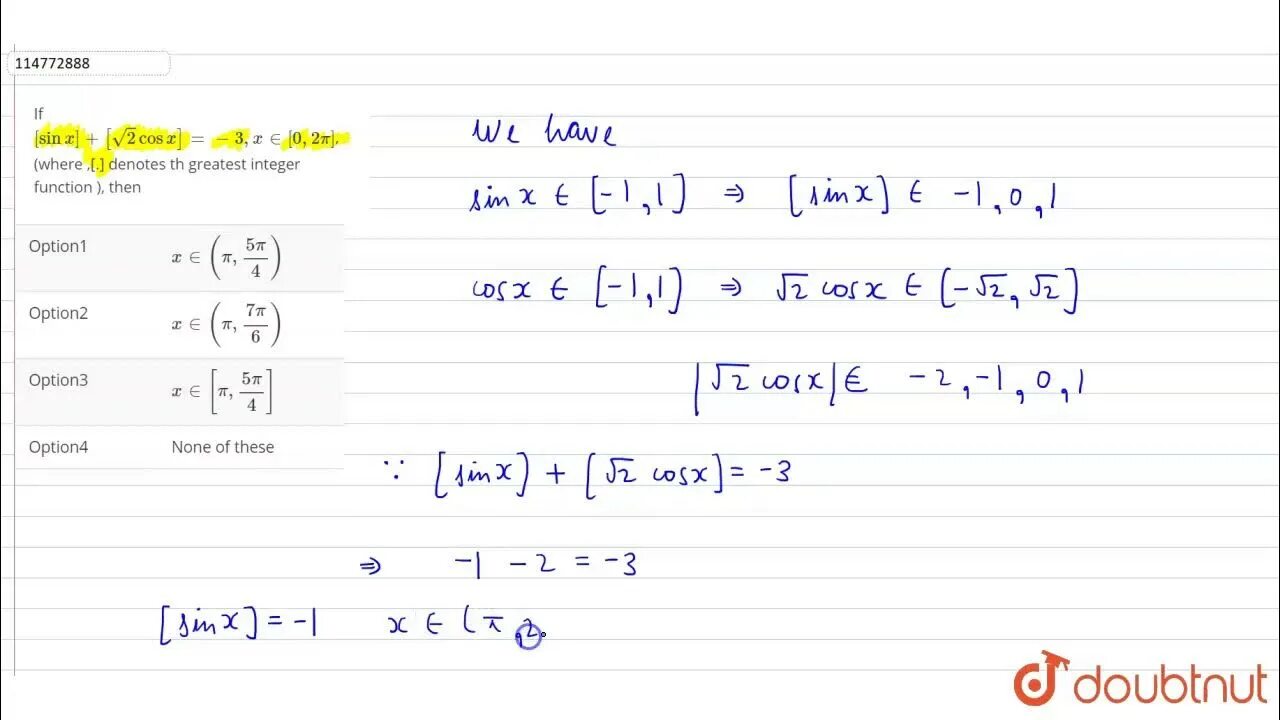 114772888
If
[sin x] + [√2 cos x] = − 3, x ∈ [0, 2π],
(where ,[.] denotes th greatest integer
function ), then
Option1 x ∈ (π, 5π/4)
Option2 x ∈ (π, 7π/6)
Option3 x ∈ [π, 5π/4]
Option4 None of these
We have
sin x ∈ [-1, 1] ⇒ [sin x] ∈ -1, 0, 1
cos x ∈ [-1, 1] ⇒ √2 cos x ∈ [-√2, √2]
|√2 cos x| ∈ -2, -1, 0, 1
∵ [sin x] + [√2 cos x] = -3
⇒ -1 -2 = -3
[sin x] = -1 x ∈ (π, 2
doubtnut